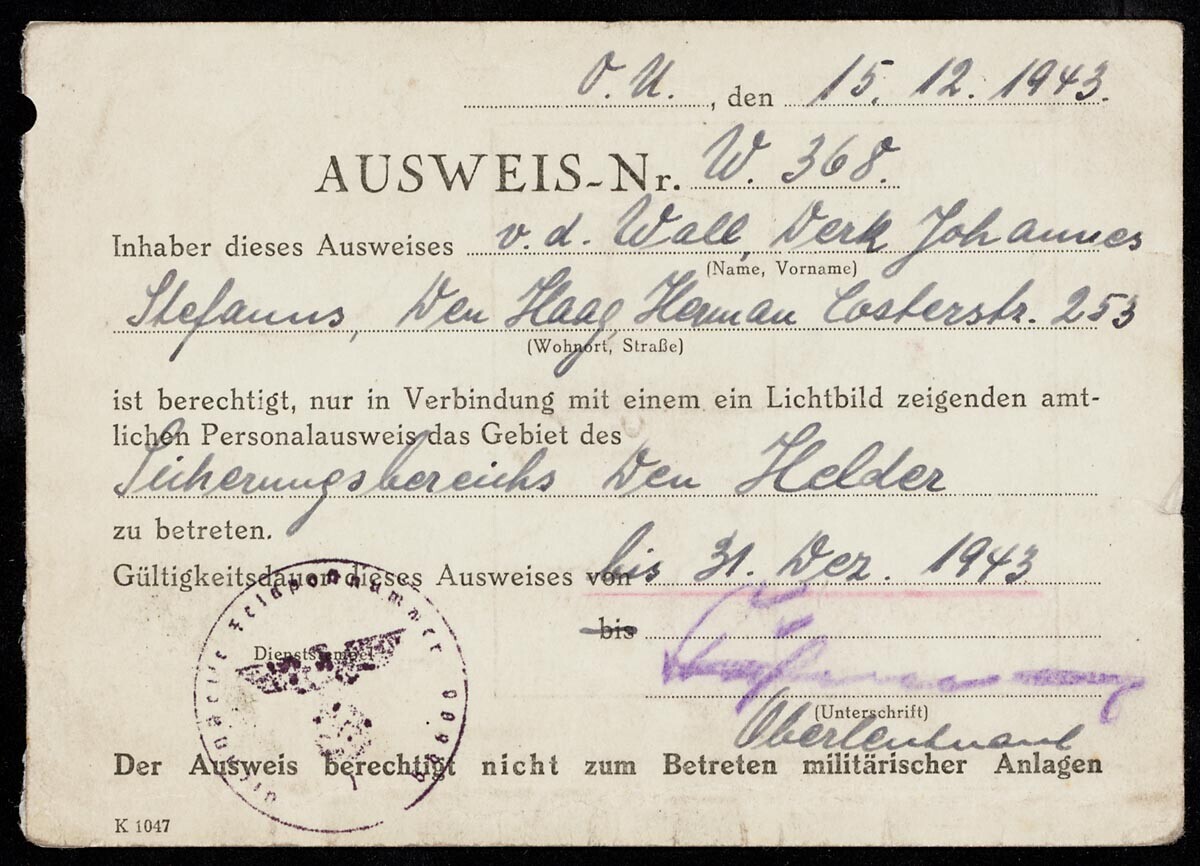 O.U., den 15. 12. 1943.
AUSWEIS-Nr. W. 368.
Inhaber dieses Ausweises v. d. Wall, Derk Johannes
(Name, Vorname)
Stefanus, Den Haag, Herman Costerstr. 253
(Wohnort, Straße)
ist berechtigt, nur in Verbindung mit einem ein Lichtbild zeigenden amt-
lichen Personalausweis das Gebiet des
Sicherungsbereichs Den Helder
zu betreten.
Gültigkeitsdauer dieses Ausweises von bis 31. Dez. 1943
bis
Dienststempel
Dienststelle Feldpostnummer
(Unterschrift)
Oberleutnant
Der Ausweis berechtigt nicht zum Betreten militärischer Anlagen
K 1047